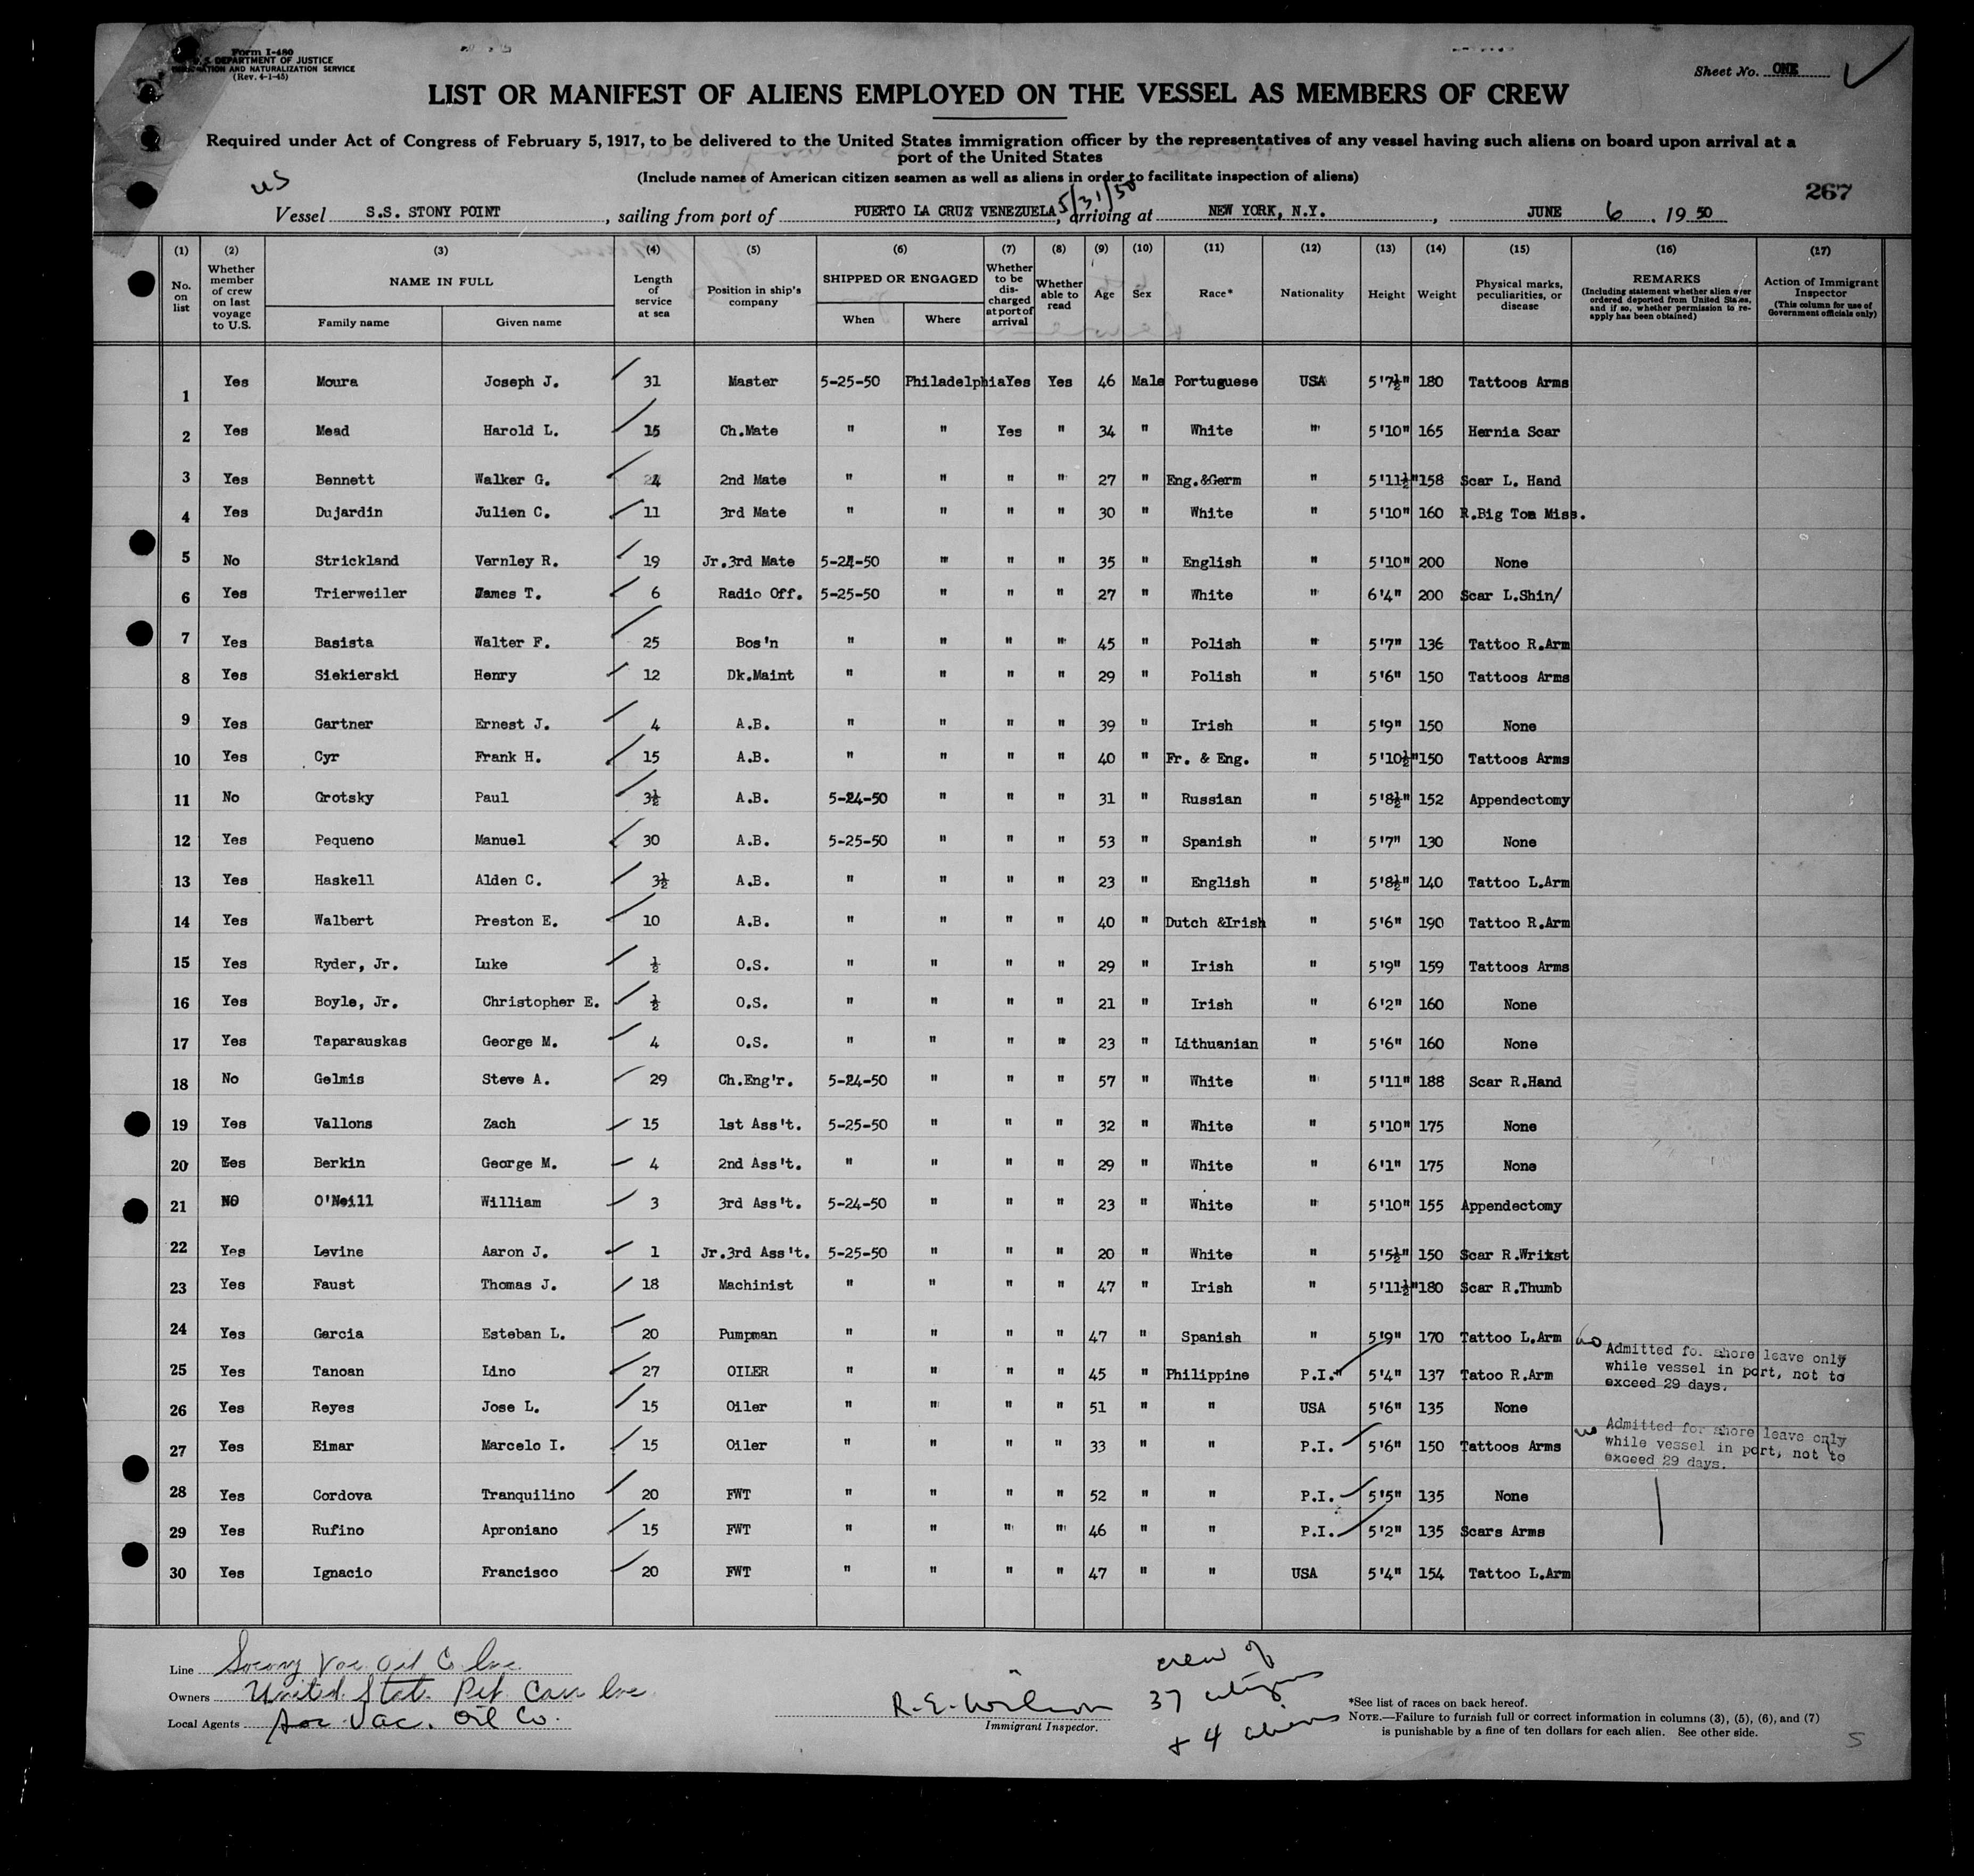 Form I-480
U. S. DEPARTMENT OF JUSTICE
IMMIGRATION AND NATURALIZATION SERVICE
(Rev. 4-1-45)
Sheet No. ONE
LIST OR MANIFEST OF ALIENS EMPLOYED ON THE VESSEL AS MEMBERS OF CREW
Required under Act of Congress of February 5, 1917, to be delivered to the United States immigration officer by the representatives of any vessel having such aliens on board upon arrival at a
port of the United States
(Include names of American citizen seamen as well as aliens in order to facilitate inspection of aliens)
US
5/31/50
267
Vessel S.S. STONY POINT, sailing from port of PUERTO LA CRUZ VENEZUELA, arriving at NEW YORK, N.Y., JUNE 6, 1950
(1) (2) (3) (4) (5) (6) (7) (8) (9) (10) (11) (12) (13) (14) (15) (16) (17)
No. on list
Whether member of crew on last voyage to U.S.
NAME IN FULL
Family name
Given name
Length of service at sea
Position in ship's company
SHIPPED OR ENGAGED
When
Where
Whether to be discharged at port of arrival
Whether able to read
Age
Sex
Race*
Nationality
Height
Weight
Physical marks, peculiarities, or disease
REMARKS
(Including statement whether alien ever ordered deported from United States, and if so, whether permission to reapply has been obtained)
Action of Immigrant Inspector
(This column for use of Government officials only)
1 Yes Moura Joseph J. 31 Master 5-25-50 Philadelphia Yes Yes 46 Male Portuguese USA 5'7½" 180 Tattoos Arms
2 Yes Mead Harold L. 15 Ch.Mate " " Yes " 34 " White " 5'10" 165 Hernia Scar
3 Yes Bennett Walker G. 4 2nd Mate " " " " 27 " Eng.&Germ " 5'11½" 158 Scar L. Hand
4 Yes Dujardin Julien C. 11 3rd Mate " " " " 30 " White " 5'10" 160 R.Big Toe Miss.
5 No Strickland Vernley R. 19 Jr.3rd Mate 5-24-50 " " " 35 " English " 5'10" 200 None
6 Yes Trierweiler James T. 6 Radio Off. 5-25-50 " " " 27 " White " 6'4" 200 Scar L.Shin/
7 Yes Basista Walter F. 25 Bos'n " " " " 45 " Polish " 5'7" 136 Tattoo R.Arm
8 Yes Siekierski Henry 12 Dk.Maint " " " " 29 " Polish " 5'6" 150 Tattoos Arms
9 Yes Gartner Ernest J. 4 A.B. " " " " 39 " Irish " 5'9" 150 None
10 Yes Cyr Frank H. 15 A.B. " " " " 40 " Fr. & Eng. " 5'10½" 150 Tattoos Arms
11 No Grotsky Paul 3½ A.B. 5-24-50 " " " 31 " Russian " 5'8½" 152 Appendectomy
12 Yes Pequeno Manuel 30 A.B. 5-25-50 " " " 53 " Spanish " 5'7" 130 None
13 Yes Haskell Alden C. 3½ A.B. " " " " 23 " English " 5'8½" 140 Tattoo L.Arm
14 Yes Walbert Preston E. 10 A.B. " " " " 40 " Dutch &Irish " 5'6" 190 Tattoo R.Arm
15 Yes Ryder, Jr. Luke ½ O.S. " " " " 29 " Irish " 5'9" 159 Tattoos Arms
16 Yes Boyle, Jr. Christopher E. ½ O.S. " " " " 21 " Irish " 6'2" 160 None
17 Yes Taparauskas George M. 4 O.S. " " " " 23 " Lithuanian " 5'6" 160 None
18 No Gelmis Steve A. 29 Ch.Eng'r. 5-24-50 " " " 57 " White " 5'11" 188 Scar R.Hand
19 Yes Vallons Zach 15 1st Ass't. 5-25-50 " " " 32 " White " 5'10" 175 None
20 Yes Berkin George M. 4 2nd Ass't. " " " " 29 " White " 6'1" 175 None
21 NO O'Neill William 3 3rd Ass't. 5-24-50 " " " 23 " White " 5'10" 155 Appendectomy
22 Yes Levine Aaron J. 1 Jr.3rd Ass't. 5-25-50 " " " 20 " White " 5'5½" 150 Scar R.Wrixst
23 Yes Faust Thomas J. 18 Machinist " " " " 47 " Irish " 5'11½" 180 Scar R.Thumb
24 Yes Garcia Esteban L. 20 Pumpman " " " " 47 " Spanish " 5'9" 170 Tattoo L.Arm
25 Yes Tanoan Lino 27 OILER " " " " 45 " Philippine P.I." 5'4" 137 Tatoo R.Arm Admitted for shore leave only while vessel in port, not to exceed 29 days.
26 Yes Reyes Jose L. 15 Oiler " " " " 51 " " USA 5'6" 135 None
27 Yes Eimar Marcelo I. 15 Oiler " " " " 33 " " P.I. 5'6" 150 Tattoos Arms Admitted for shore leave only while vessel in port, not to exceed 29 days.
28 Yes Cordova Tranquilino 20 FWT " " " " 52 " " P.I. 5'5" 135 None
29 Yes Rufino Aproniano 15 FWT " " " " 46 " " P.I. 5'2" 135 Scars Arms
30 Yes Ignacio Francisco 20 FWT " " " " 47 " " USA 5'4" 154 Tattoo L.Arm
Line Socony Vac Oil Co Inc
Owners United Stat. Pet Carr Inc
Local Agents Soc. Vac. Oil Co.
R.E. Wilson
Immigrant Inspector.
crew of
37 citizens
+ 4 aliens
*See list of races on back hereof.
NOTE.—Failure to furnish full or correct information in columns (3), (5), (6), and (7)
is punishable by a fine of ten dollars for each alien. See other side.